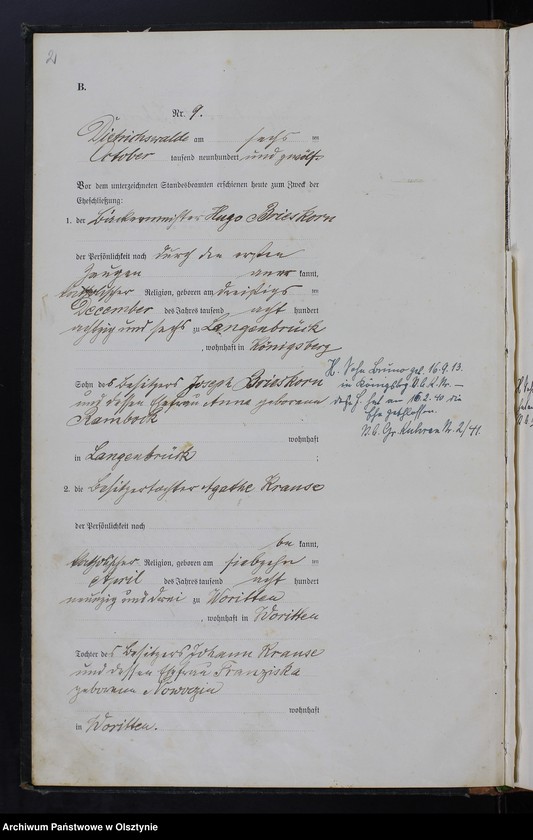 2
B.
Nr. 9.
Dietrichswalde am sechs ten
October tausend neunhundert und zwölf
Vor dem unterzeichneten Standesbeamten erschienen heute zum Zweck der
Eheschließung:
1. der Bäckermeister Hugo Brieskorn
der Persönlichkeit nach durch den ersten
Zeugen aner kannt,
katholischer Religion, geboren am dreißigs ten
December des Jahres tausend acht hundert
achtzig und sechs zu Langenbrück
, wohnhaft in Königsberg
Sohn des Besitzers Joseph Brieskorn
und dessen Ehefrau Anna geborene
Rambock
wohnhaft
in Langenbrück ;
2. die Besitzertochter Agathe Krause
der Persönlichkeit nach
be kannt,
katholischer Religion, geboren am siebzehn ten
April des Jahres tausend acht hundert
neunzig und drei zu Woritten
, wohnhaft in Woritten
Tochter des Besitzers Johann Krause
und dessen Ehefrau Franziska
geborene
wohnhaft
in Woritten.
H. Sohn Bruno geb. 16.9.13.
in Königsbg
hat am 16.2.40. die
Ehe geschlossen.
Gr. Kuhren Nr. 2/41.
Archiwum Państwowe w Olsztynie